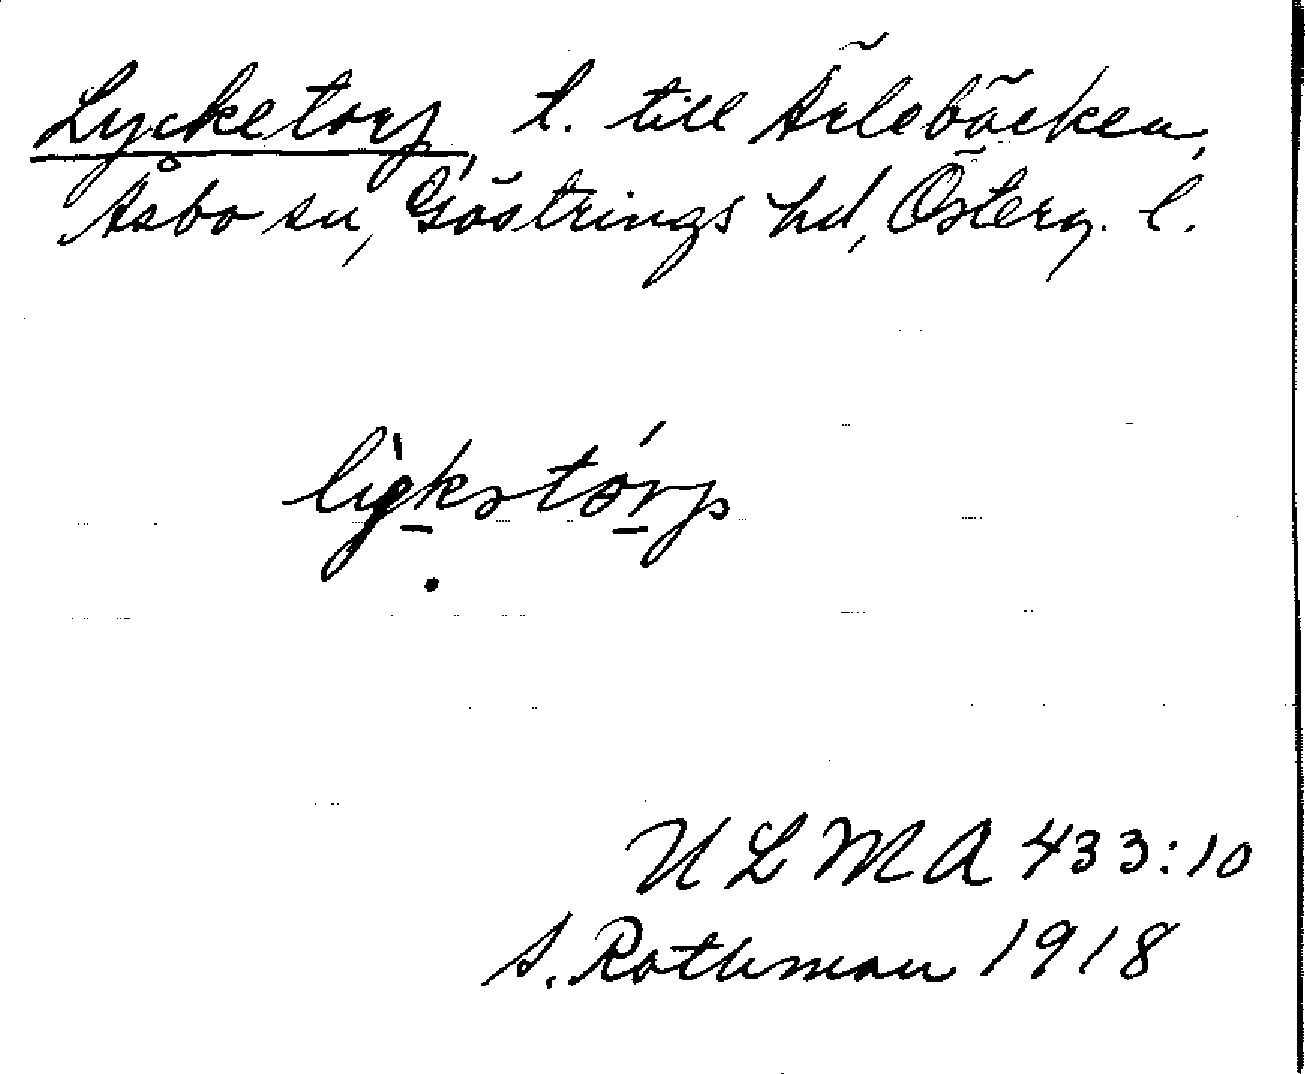 Lycketorp, t. till Ärlebäcken,
Åsbo sn, Göstrings hd, Österg. l.
lỳkstórp
ULMA 433:10
S. Rothman 1918